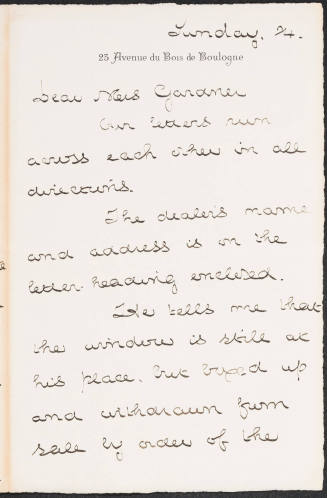 Sunday. 2/4.
23 Avenue du Bois de Boulogne
Dear Mrs Gardner
Our letters run
across each other in all
directions.
The dealer's name
and address is on the
letter-heading enclosed.
He tells me that
the window is still at
his place, but boxed up
and withdrawn from
sale by order of the